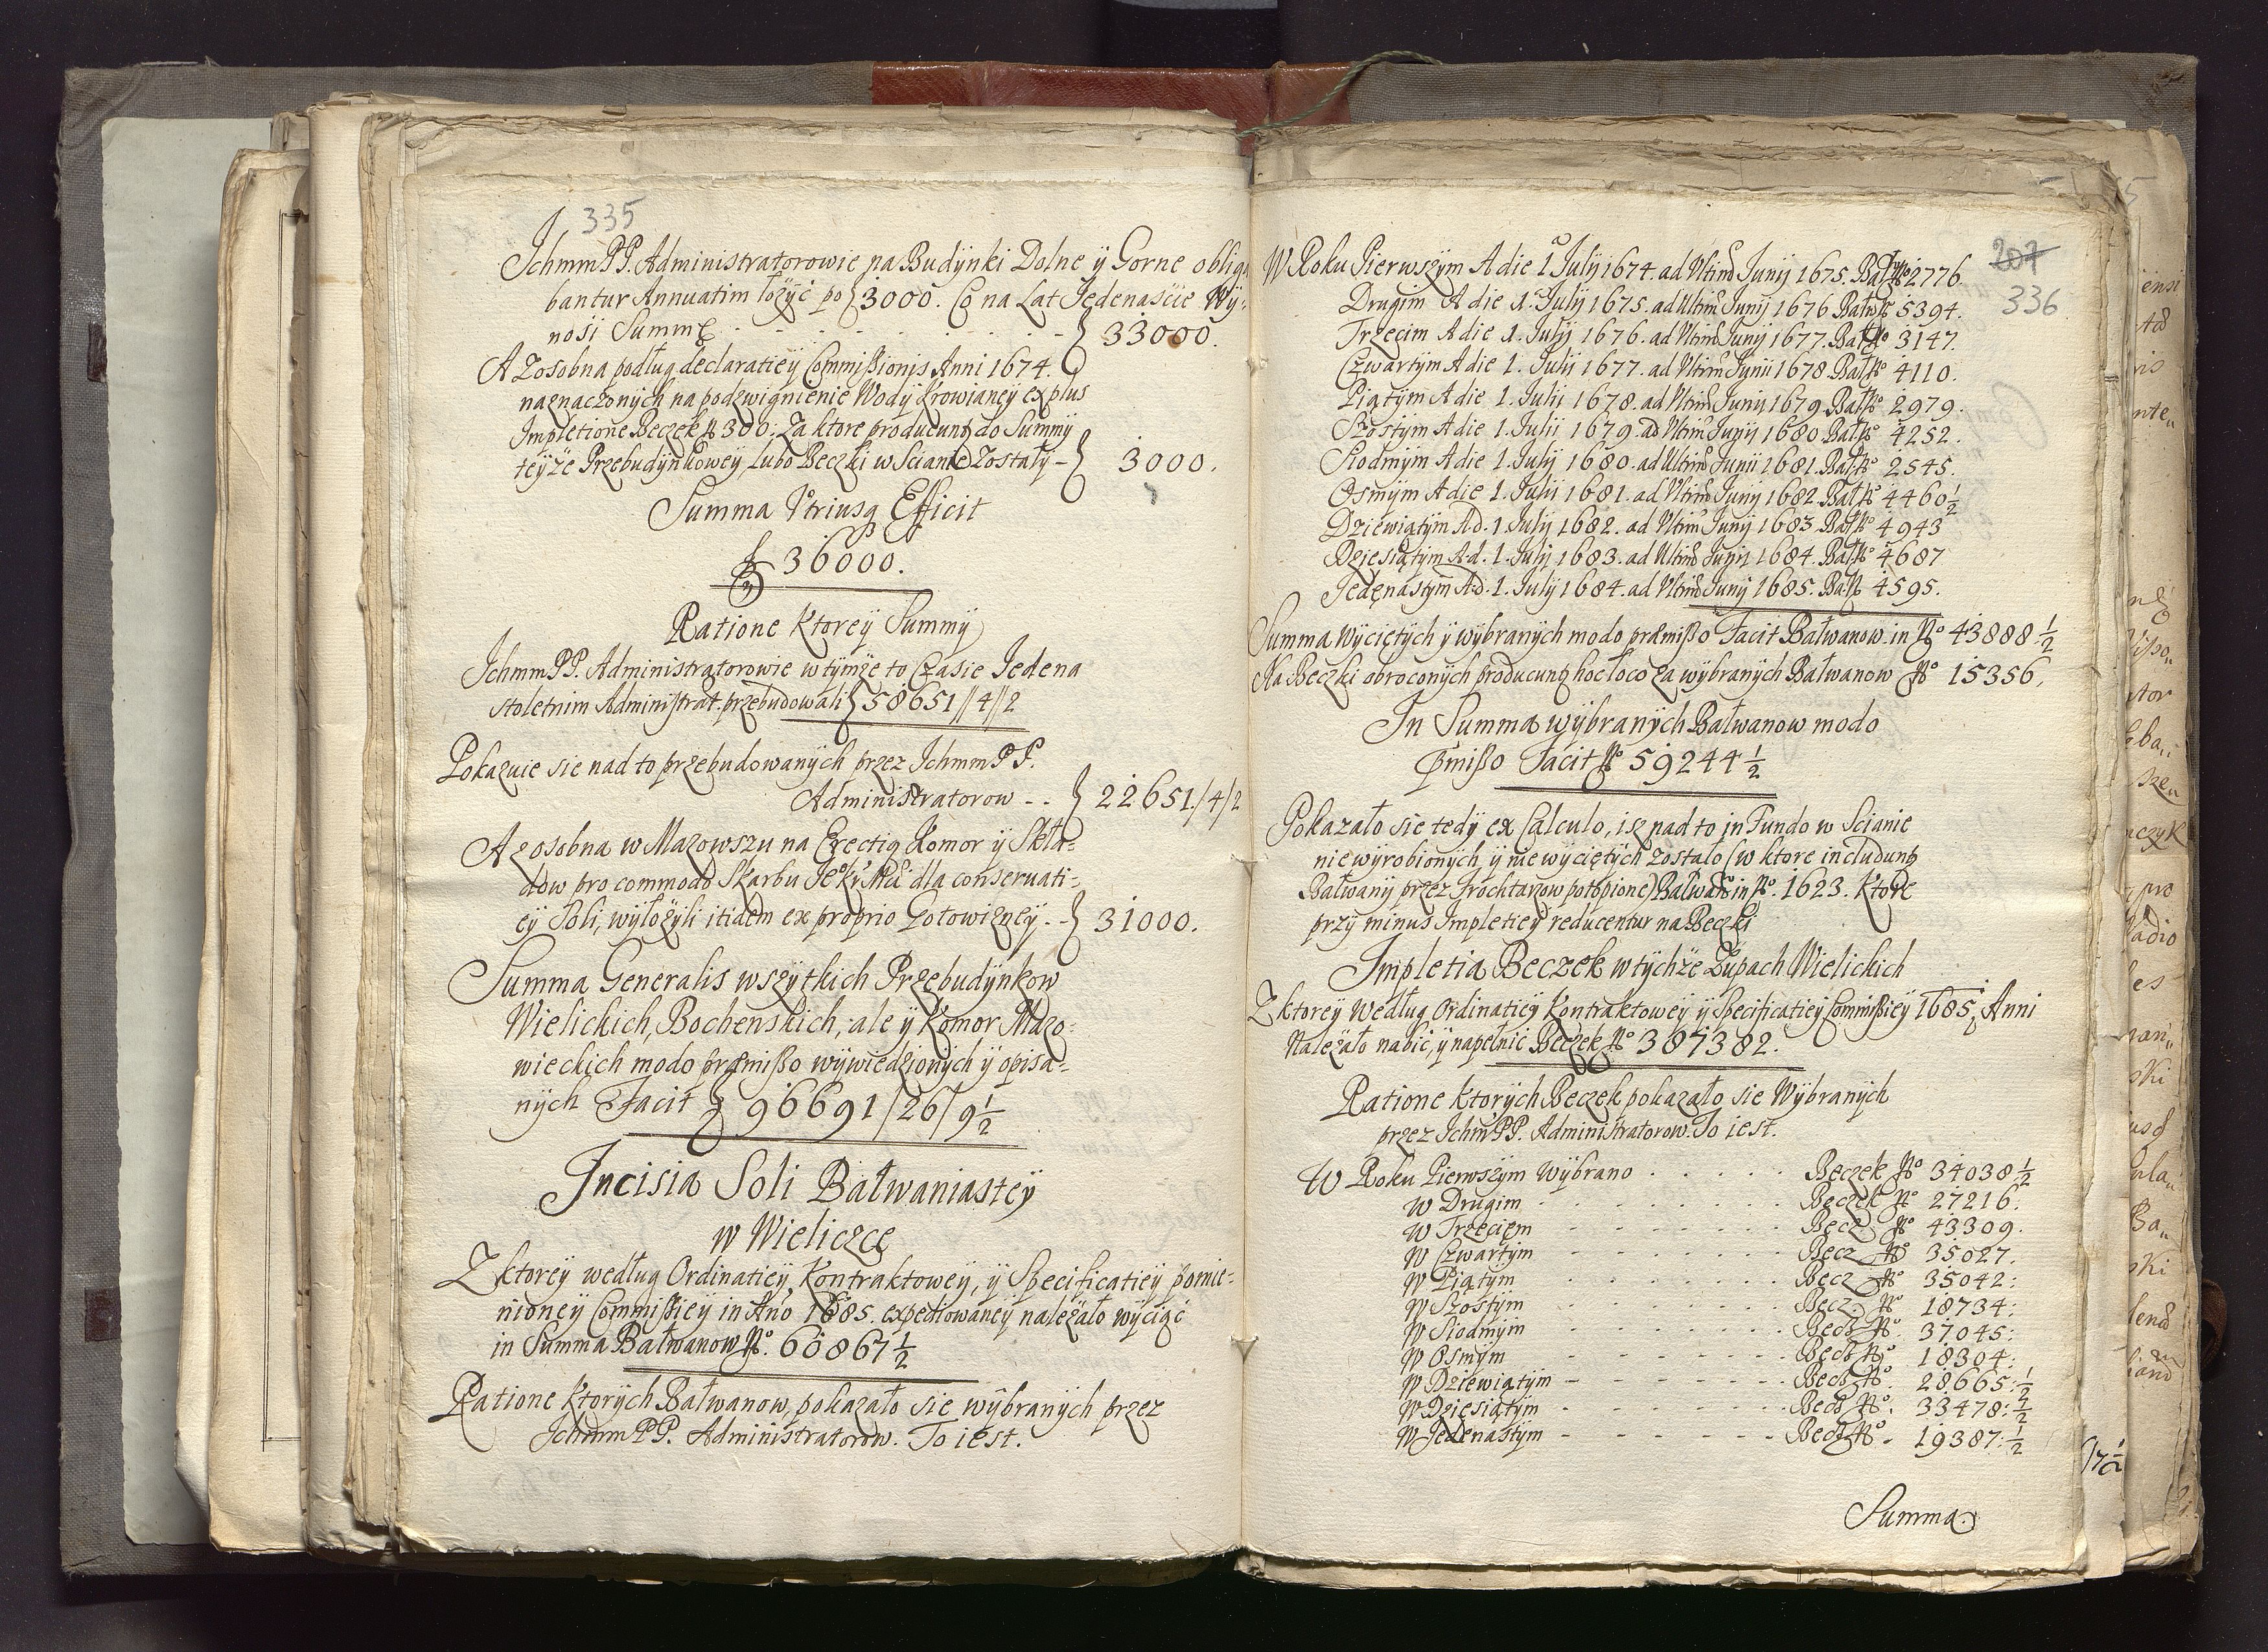 335
JchmmPP. Administratorowie na Budÿnki Dolne ÿ Gorne obliga
bantur Annuatim łożÿć po 3000. Co na Lat Jedenaście Wÿ:
nosi Summę - - - - - 33000.
A Zosobna podług declaratieÿ Commißionis Anni 1674.
naznaczonÿch na podzwignienie Wodÿ Krowianeÿ ex plus
Impletione Beczek No 300: Za ktore producunt do Summÿ
teÿże Przebudÿnkoweÿ, Lubo Beczki w Scianie Zostałÿ - 3000.
Summa Vtriusq Efficit
f 36000.
Ratione Ktoreÿ Summÿ
JchmmPP. Administratorowie w tÿmże to Czasie Jedena
stoletnim Administrat. przebudowali 58651//4//2
Pokazuie sie nad to przebudowanÿch przez JchmmPP.
Administratorow - - 22651/4/2
A zosobna w Mazowszu na Erectią Komor ÿ Skła-
dow pro commodo Skarbu JeoKrMci dla conseruati-
eÿ Soli, wÿłożÿli itidem ex proprio Gotowizneÿ - 31000.
Summa Generalis wszÿtkich Przebudÿnkow
Wielickich, Bochenskich, ale ÿ Komor Mazo-
wieckich modo præmißo wÿwiedzionÿch ÿ opisa-
nÿch Facit 96691/26/9½
Incisia Soli Bałwaniasteÿ
w Wieliczce
Z ktoreÿ według Ordinatieÿ Kontraktoweÿ, ÿ Specificatieÿ pomie-
nioneÿ Commißieÿ in Ano 1685. expediowaneÿ należało wÿciąć
in Summa Bałwanow No. 60867½
Ratione ktorÿch Bałwanow, pokazało sie wÿbranÿch przez
JchmmPP. Administratorow. To iest.
207
336
W Roku Pierwszÿm A die 1 Julÿ 1674. ad Vltimd Junÿ 1675. Bał No 2776.
Drugim A die 1. Julÿ 1675. ad Vltimd Junÿ 1676 Bał No 5394.
Trzecim A die 1. Julÿ 1676. ad Vltimd Junÿ 1677. Bał No 3147.
Czwartÿm A die 1. Julii 1677. ad Vltimd Junii 1678 Bał No 4110.
Piątÿm A die 1. Julii 1678. ad Vltimd Junÿ 1679 Bał No 2979.
Szostÿm A die 1. Julii 1679. ad Vltimd Junÿ 1680 Bał No 4252.
Siodmÿm A die 1. Julÿ 1680. ad Ultimd Junii 1681. Bał No 2545.
Osmÿm A die 1. Julii 1681. ad Vltimd Junÿ 1682. Bał No 4460½
Dziewiątÿm Ad. 1. Julÿ 1682. ad Vltimd Junÿ 1683. Bał No 4943
Dziesiątÿm Ad. 1. Julÿ 1683. ad Ultimd Junÿ 1684. Bał No 4687
Jedenastÿm A.d. 1. Julÿ 1684. ad Vltimd Junÿ 1685. Bał No 4595.
Summa wÿciętÿch ÿ wÿbranÿch modo præmißo Facit Bałwanow. in No 43888½
Na Beczki obroconÿch producunt hoc loco za wÿbranÿch Bałwanow No 15356.
In Summa wÿbranÿch Bałwanow modo
pmißo Facit No 59244½
Pokazało sie tedÿ ex Calculo, isz nad to in Fundo w Scianie
niewÿrobionÿch ÿ niewÿciętÿch zostało (w ktore includunt
Bałwanÿ przez Trochtarzow potopione) Bałwaow in No. 1623. Ktore
przÿ minus Impletieÿ reducentur na Beczki
Impletia Beczek w tÿchże Żupach Wielickich
Z ktoreÿ Według Ordinatieÿ Kontraktoweÿ ÿ Specificatieÿ Commißieÿ 1685. Anni
Należało nabić, ÿ napełnić Beczek No 387382.
Ratione ktorÿch Beczek pokazało sie Wÿbranÿch
przez JchmPP. Administratorow. To iest.
W Roku Pierwszÿm Wÿbrano . . . . . Beczek No 34038½
W Drugim - - - - - Beczek No 27216.
W Trzecim - - - - - Becz No 43309.
W Czwartÿm - - - - - Becz No 35027.
W Piątÿm - - - - - Becz No 35042:
W Szostÿm - - - - - Becz. No 18734:
W Siodmÿm - - - - - Becz No. 37045:
W Osmÿm - - - - - Becz No. 18304:
W Dziewiątÿm - - - - - Becz No. 28665:½
W Dziesiątÿm - - - - - Becz No. 33478:½
W Jedenastÿm - - - - - Becz No. 19387:½
Summa